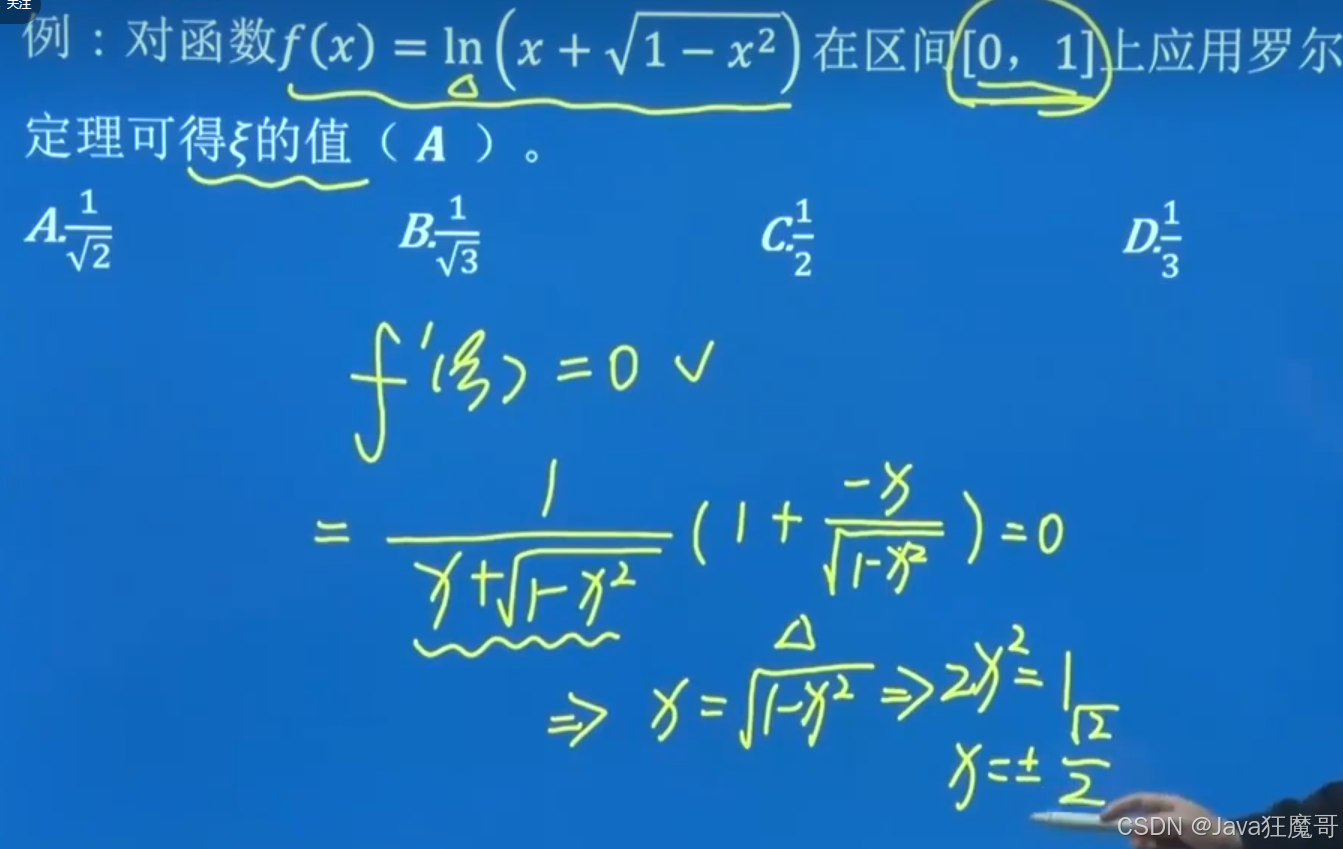 关注
例：对函数f(x) = ln(x + √(1 − x²))在区间[0，1]上应用罗尔
定理可得ξ的值（ A ）。
A. 1/√2 B. 1/√3 C. 1/2 D. 1/3
f′(ξ) = 0 ✓
= 1/(x+√(1-x²)) (1 + -x/√(1-x²)) = 0
⇒ x = √(1-x²) ⇒ 2x² = 1
x = ± √2/2
CSDN @Java狂魔哥